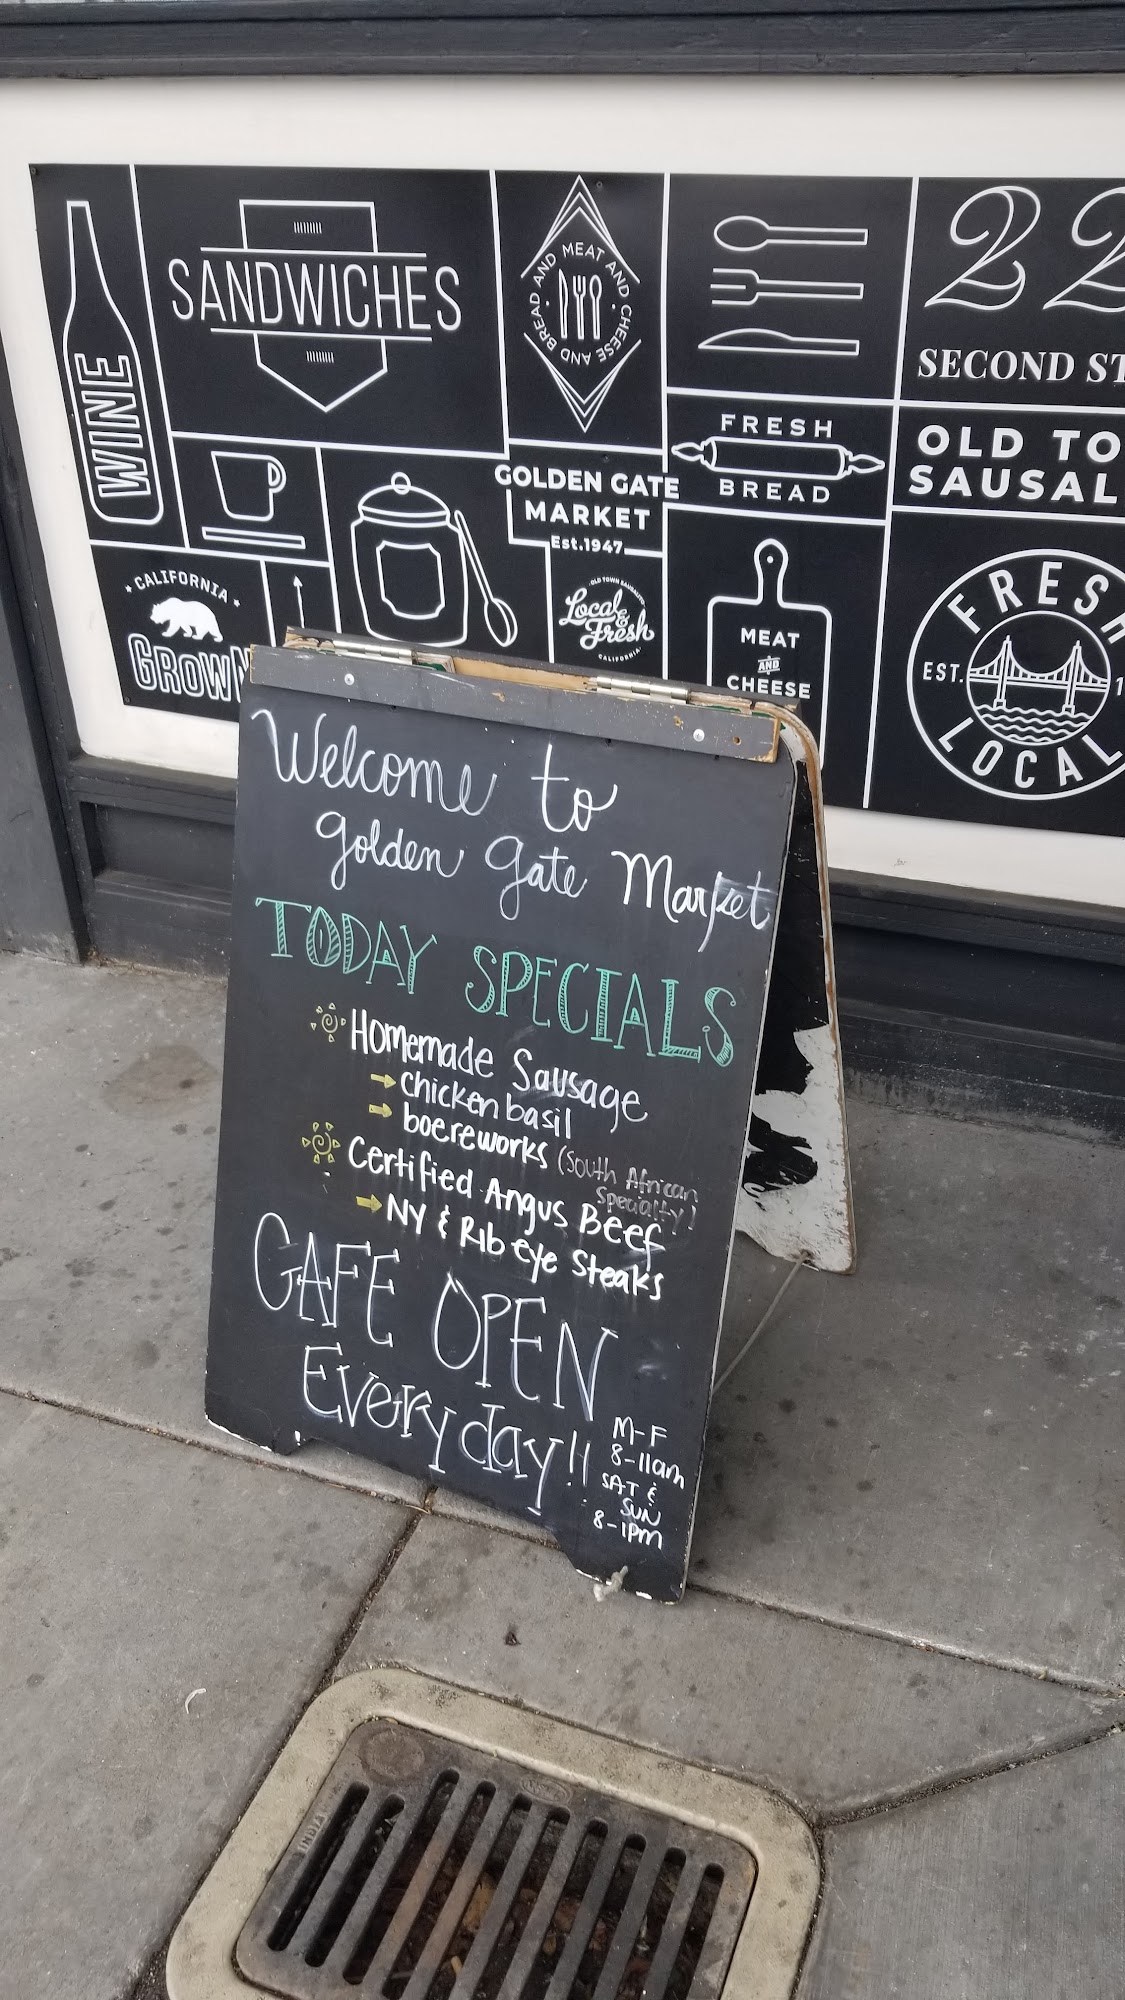 WINE
SANDWICHES
AND MEAT AND CHEESE AND BREAD
22
SECOND ST
FRESH
BREAD
OLD TO
SAUSAL
GOLDEN GATE
MARKET
Est.1947
CALIFORNIA
GROWN
OLD TOWN SAUSALITO
Local &
Fresh
CALIFORNIA
MEAT
AND
CHEESE
FRESH
EST. 1
LOCAL
Welcome to
Golden Gate Market
TODAY SPECIALS
Homemade Sausage
→ chicken basil
→ boereworks (South African
Specialty)
Certified Angus Beef
→ NY & Rib eye Steaks
CAFE OPEN
Everyday!!
M-F
8-11am
SAT &
SUN
8-1PM
INDIA